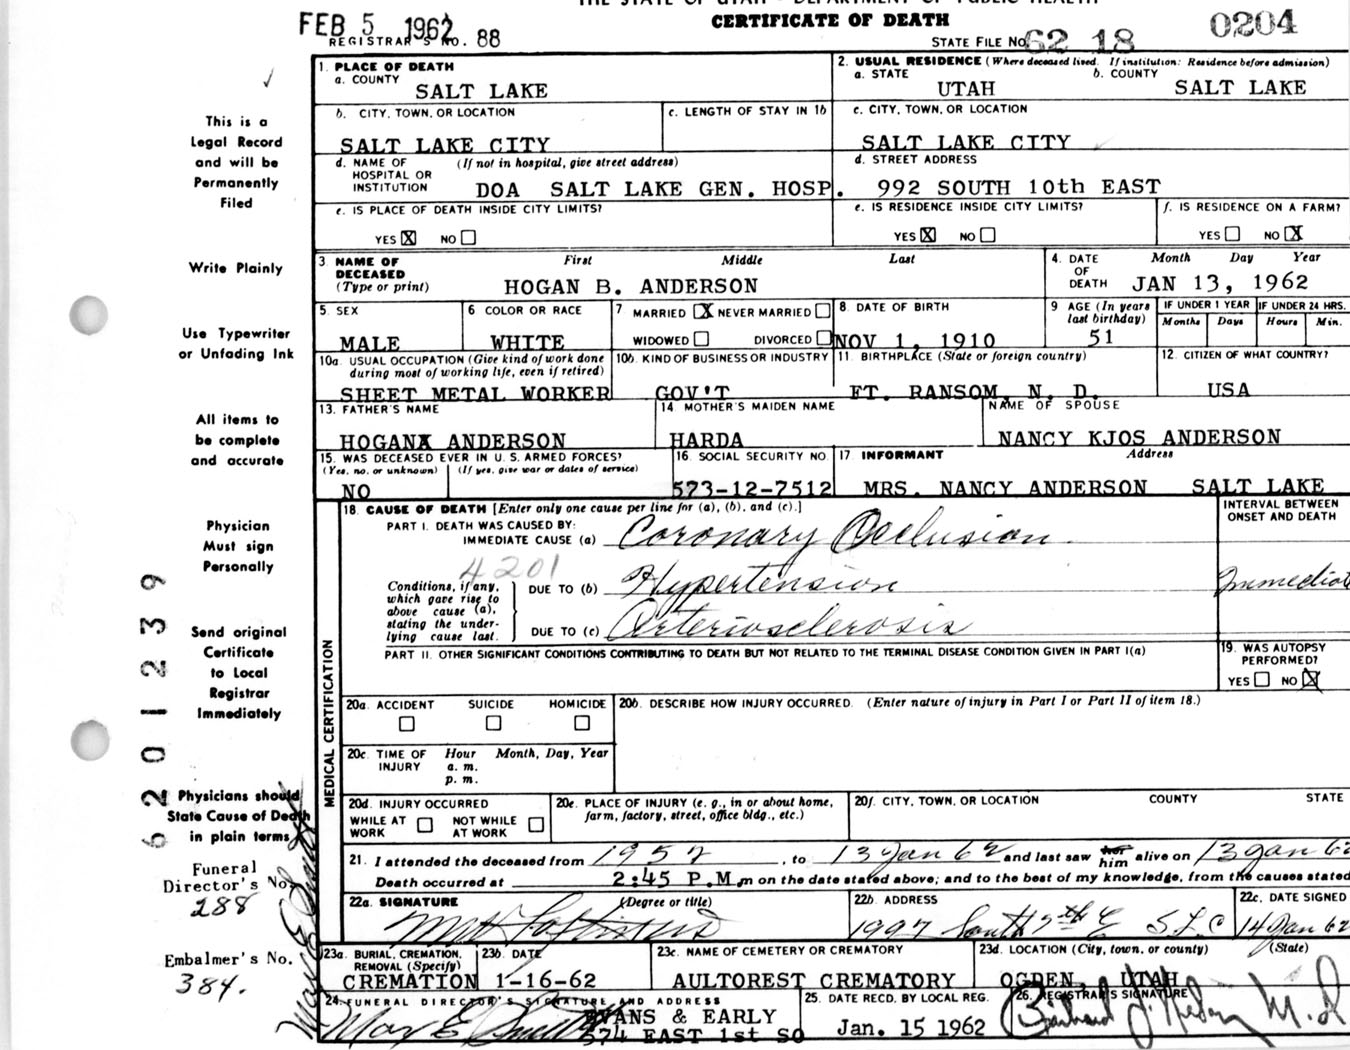 THE STATE OF UTAH - DEPARTMENT OF PUBLIC HEALTH
FEB 5 1962
CERTIFICATE OF DEATH
0204
REGISTRAR'S NO. 88
STATE FILE NO. 62 18
1. PLACE OF DEATH
a. COUNTY
SALT LAKE
2. USUAL RESIDENCE (Where deceased lived. If institution: Residence before admission)
a. STATE b. COUNTY
UTAH SALT LAKE
b. CITY, TOWN, OR LOCATION
SALT LAKE CITY
c. LENGTH OF STAY IN 1b
c. CITY, TOWN, OR LOCATION
SALT LAKE CITY
d. NAME OF HOSPITAL OR INSTITUTION (If not in hospital, give street address)
DOA SALT LAKE GEN. HOSP.
d. STREET ADDRESS
992 SOUTH 10th EAST
e. IS PLACE OF DEATH INSIDE CITY LIMITS?
YES X NO
e. IS RESIDENCE INSIDE CITY LIMITS?
YES X NO
f. IS RESIDENCE ON A FARM?
YES NO X
3. NAME OF DECEASED (Type or print) First Middle Last
HOGAN B. ANDERSON
4. DATE OF DEATH Month Day Year
JAN 13, 1962
5. SEX
MALE
6 COLOR OR RACE
WHITE
7 MARRIED X NEVER MARRIED
WIDOWED DIVORCED
8. DATE OF BIRTH
NOV 1, 1910
9 AGE (In years last birthday)
51
IF UNDER 1 YEAR
Months Days
IF UNDER 24 HRS.
Hours Min.
10a. USUAL OCCUPATION (Give kind of work done during most of working life, even if retired)
SHEET METAL WORKER
10b. KIND OF BUSINESS OR INDUSTRY
GOV'T
11. BIRTHPLACE (State or foreign country)
FT. RANSOM, N. D.
12. CITIZEN OF WHAT COUNTRY?
USA
13. FATHER'S NAME
HOGANX ANDERSON
14 MOTHER'S MAIDEN NAME
HARDA
NAME OF SPOUSE
NANCY KJOS ANDERSON
15. WAS DECEASED EVER IN U. S. ARMED FORCES?
(Yes, no, or unknown) (If yes, give war or dates of service)
NO
16. SOCIAL SECURITY NO.
573-12-7512
17 INFORMANT Address
MRS. NANCY ANDERSON SALT LAKE
18. CAUSE OF DEATH [Enter only one cause per line for (a), (b), and (c).]
INTERVAL BETWEEN ONSET AND DEATH
PART I. DEATH WAS CAUSED BY:
IMMEDIATE CAUSE (a) Coronary Occlusion
4201
Conditions, if any, which gave rise to above cause (a), stating the underlying cause last.
DUE TO (b) Hypertension
Immediate
DUE TO (c) Arteriosclerosis
PART II. OTHER SIGNIFICANT CONDITIONS CONTRIBUTING TO DEATH BUT NOT RELATED TO THE TERMINAL DISEASE CONDITION GIVEN IN PART I(a)
19. WAS AUTOPSY PERFORMED?
YES NO X
MEDICAL CERTIFICATION
20a. ACCIDENT SUICIDE HOMICIDE
20b. DESCRIBE HOW INJURY OCCURRED. (Enter nature of injury in Part I or Part II of item 18.)
20c. TIME OF INJURY Hour a. m. p. m. Month, Day, Year
20d. INJURY OCCURRED
WHILE AT WORK NOT WHILE AT WORK
20e. PLACE OF INJURY (e. g., in or about home, farm, factory, street, office bldg., etc.)
20f. CITY, TOWN, OR LOCATION COUNTY STATE
21. I attended the deceased from 1957, to 13 Jan 62 and last saw her him alive on 13 Jan 62
Death occurred at 2:45 P.M. m on the date stated above; and to the best of my knowledge, from the causes stated
22a. SIGNATURE (Degree or title)
22b. ADDRESS
1997 South 7th E S L C
22c. DATE SIGNED
14 Jan 62
23a. BURIAL, CREMATION, REMOVAL (Specify)
CREMATION
23b. DATE
1-16-62
23c. NAME OF CEMETERY OR CREMATORY
AULTOREST CREMATORY
23d. LOCATION (City, town, or county) (State)
OGDEN, UTAH
24. FUNERAL DIRECTOR'S SIGNATURE AND ADDRESS
EVANS & EARLY
574 EAST 1st SO
25. DATE RECD. BY LOCAL REG.
Jan. 15 1962
26. REGISTRAR'S SIGNATURE
M.D
This is a
Legal Record
and will be
Permanently
Filed
Write Plainly
Use Typewriter
or Unfading Ink
All items to
be complete
and accurate
Physician
Must sign
Personally
Send original
Certificate
to Local
Registrar
Immediately
Physicians should
State Cause of Death
in plain terms
Funeral
Director's No.
288
Embalmer's No.
384.
6201239